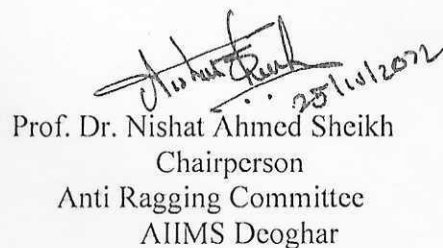 25/10/2022
Prof. Dr. Nishat Ahmed Sheikh
Chairperson
Anti Ragging Committee
AIIMS Deoghar